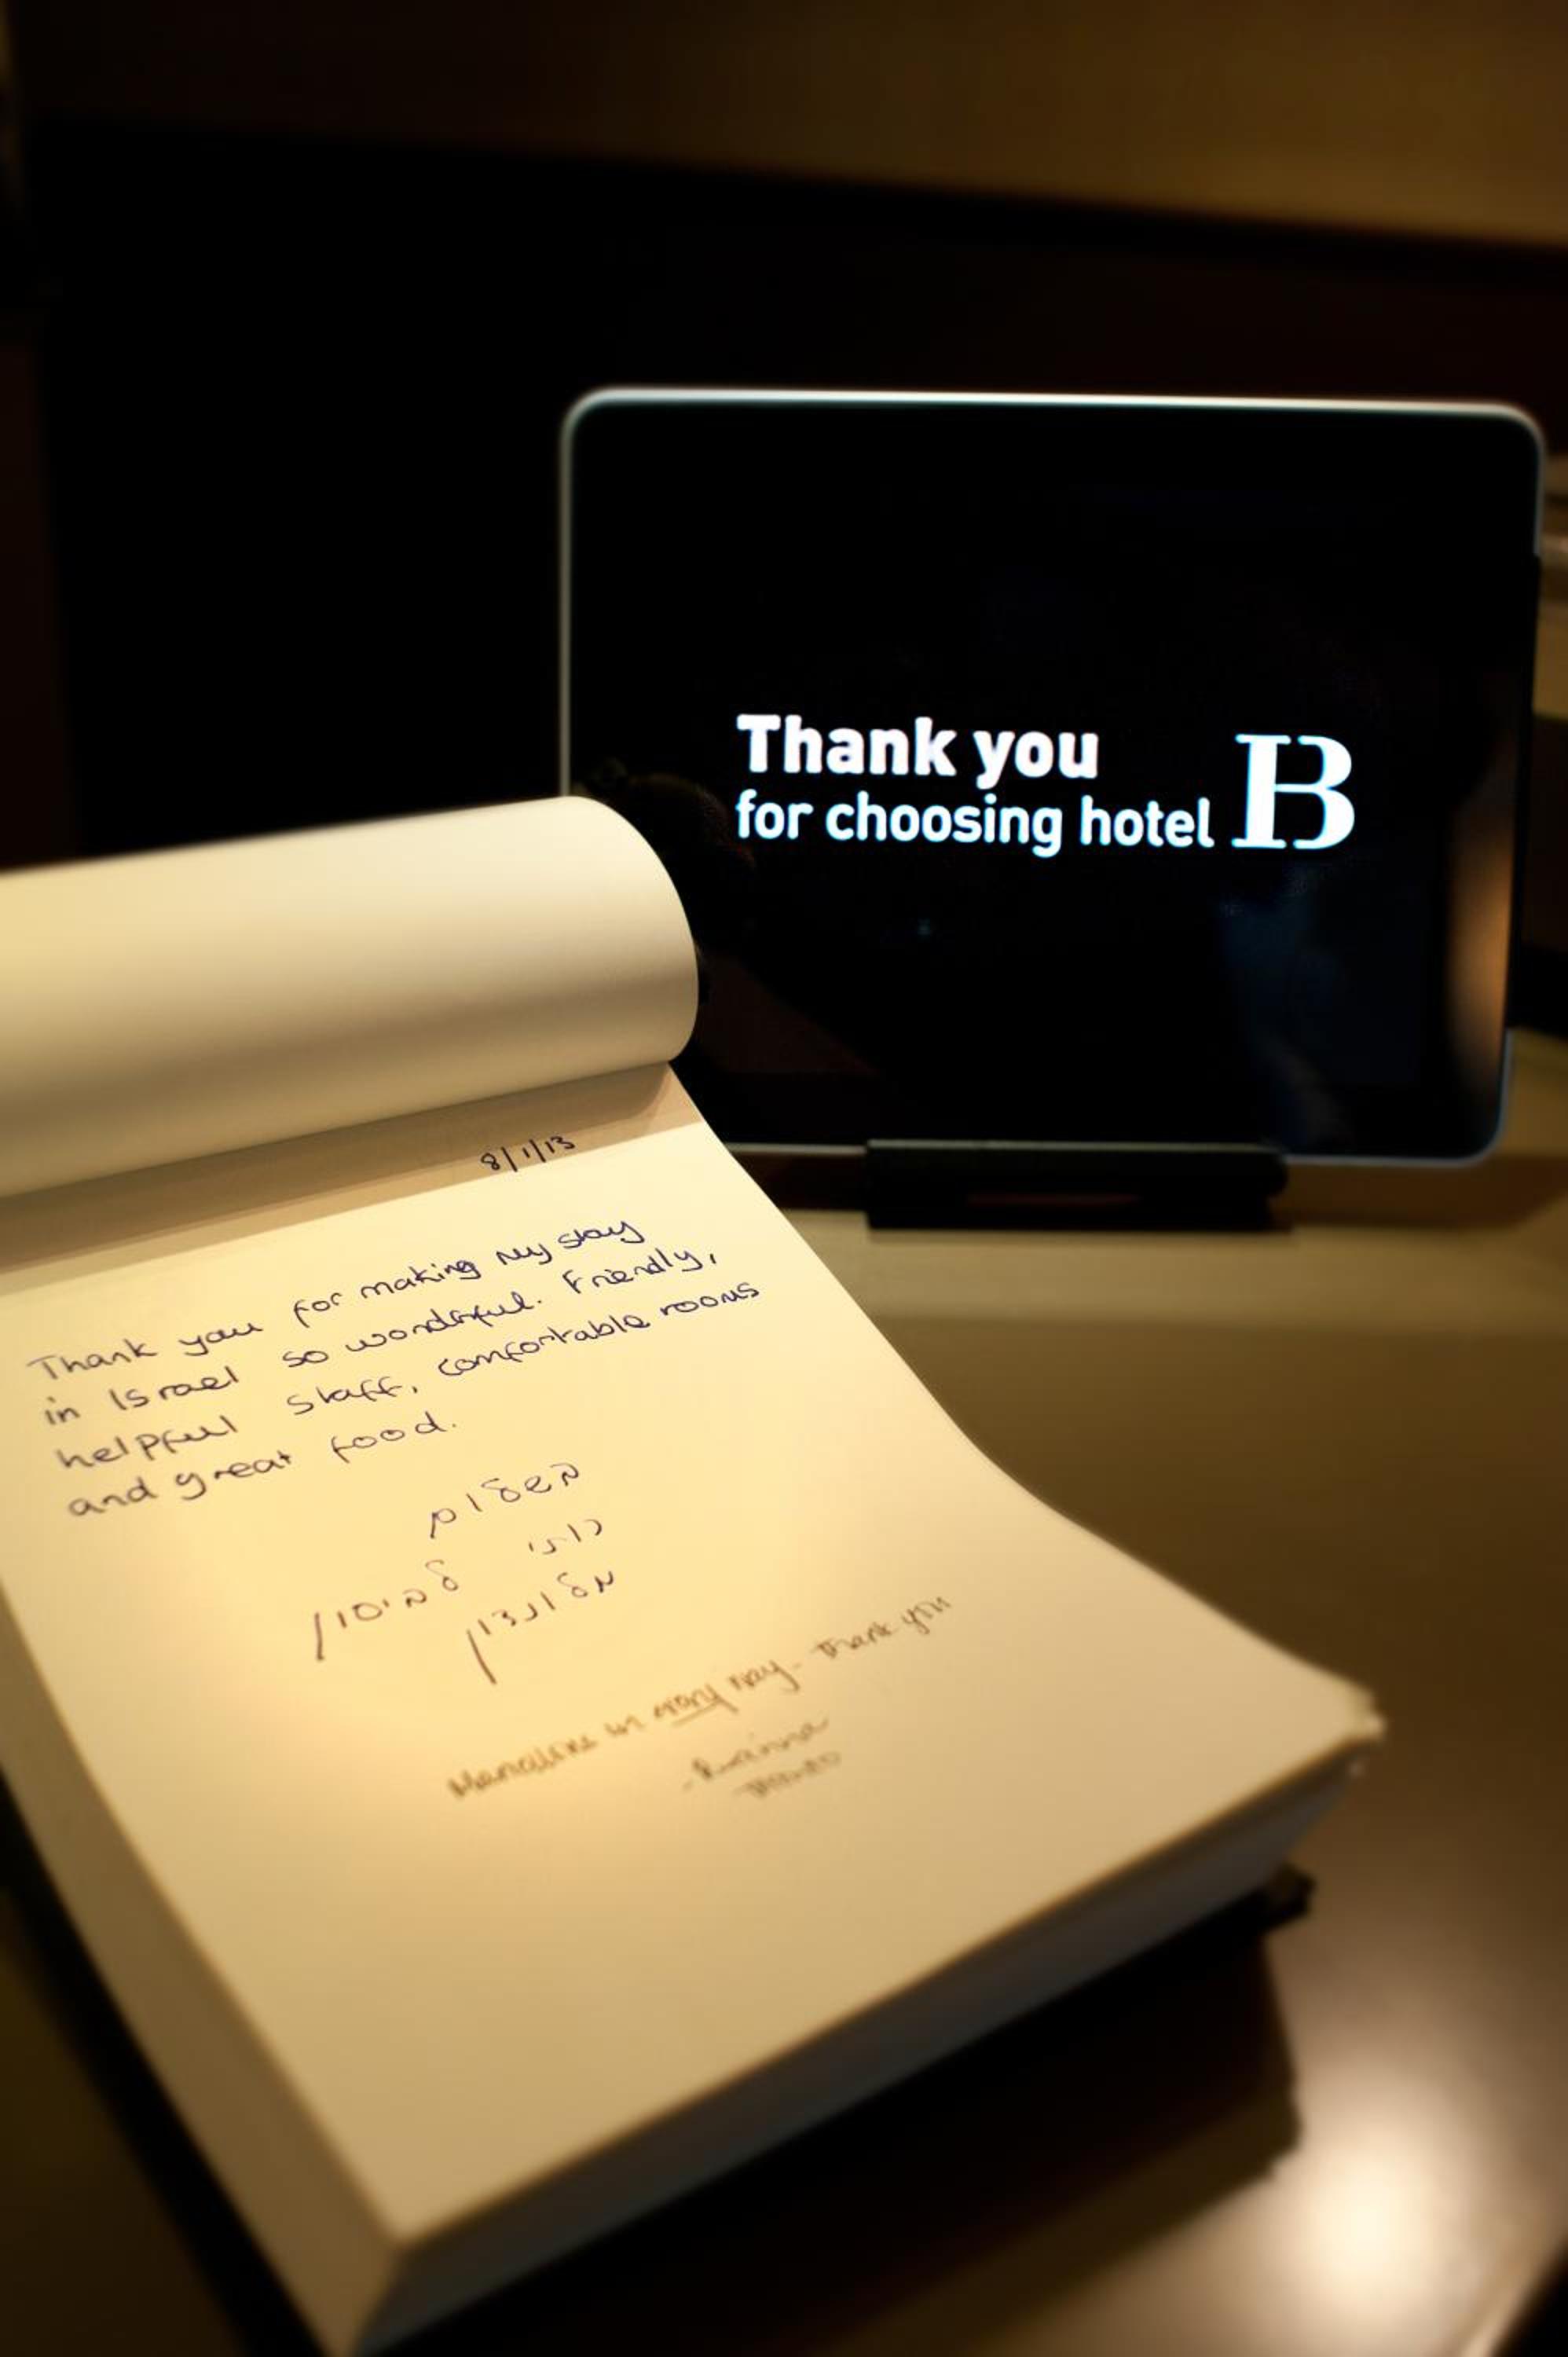 Thank you
for choosing hotel B
8/1/13
Thank you for making my stay
in Israel so wonderful. Friendly,
helpful staff, comfortable rooms
and great food.
בשלום
רותי לביסון
מלונדון
in many way - Thank you